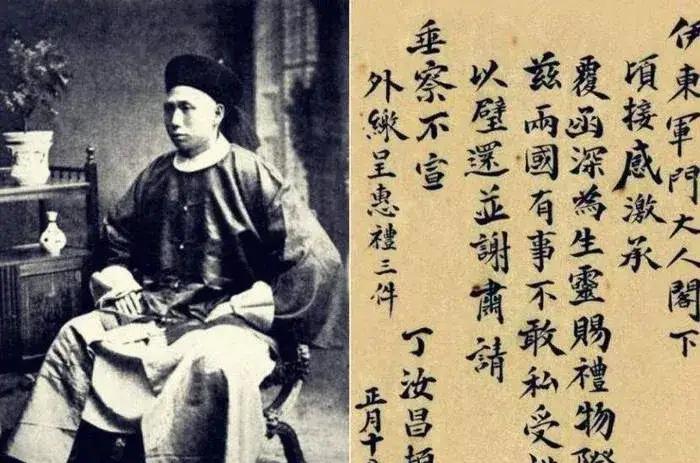 伊東軍門大人閣下
頃接感激承
覆函深為生靈賜禮物際
茲兩國有事不敢私受
以璧還並謝肅請
垂察不宣
外繳呈惠禮三件
丁汝昌頓
正月十